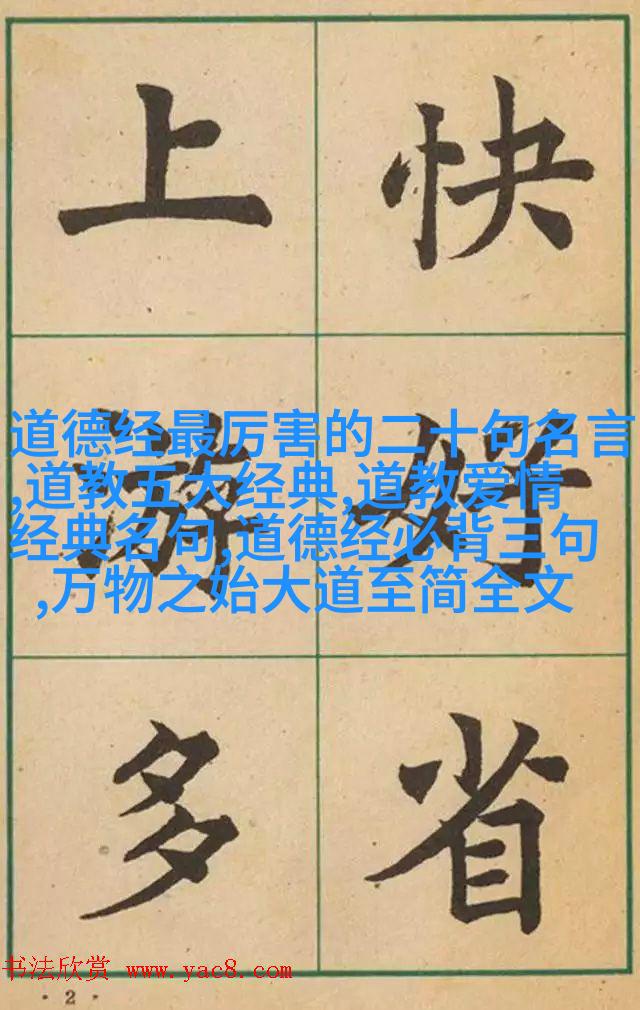 上游多
快好省
道德经最厉害的二十句名言
,道教五大经典,道教爱情
经典名句,道德经必背三句
,万物之始大道至简全文
书法欣赏 www.yac8.com
·2·